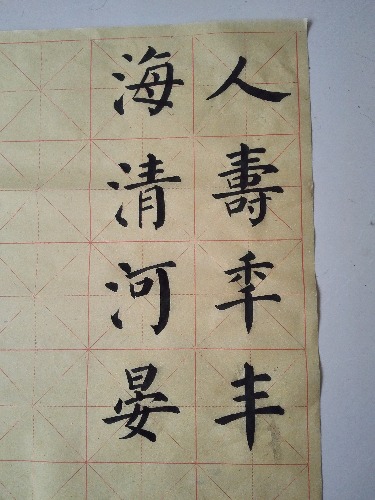 人壽秊丰
海清河晏